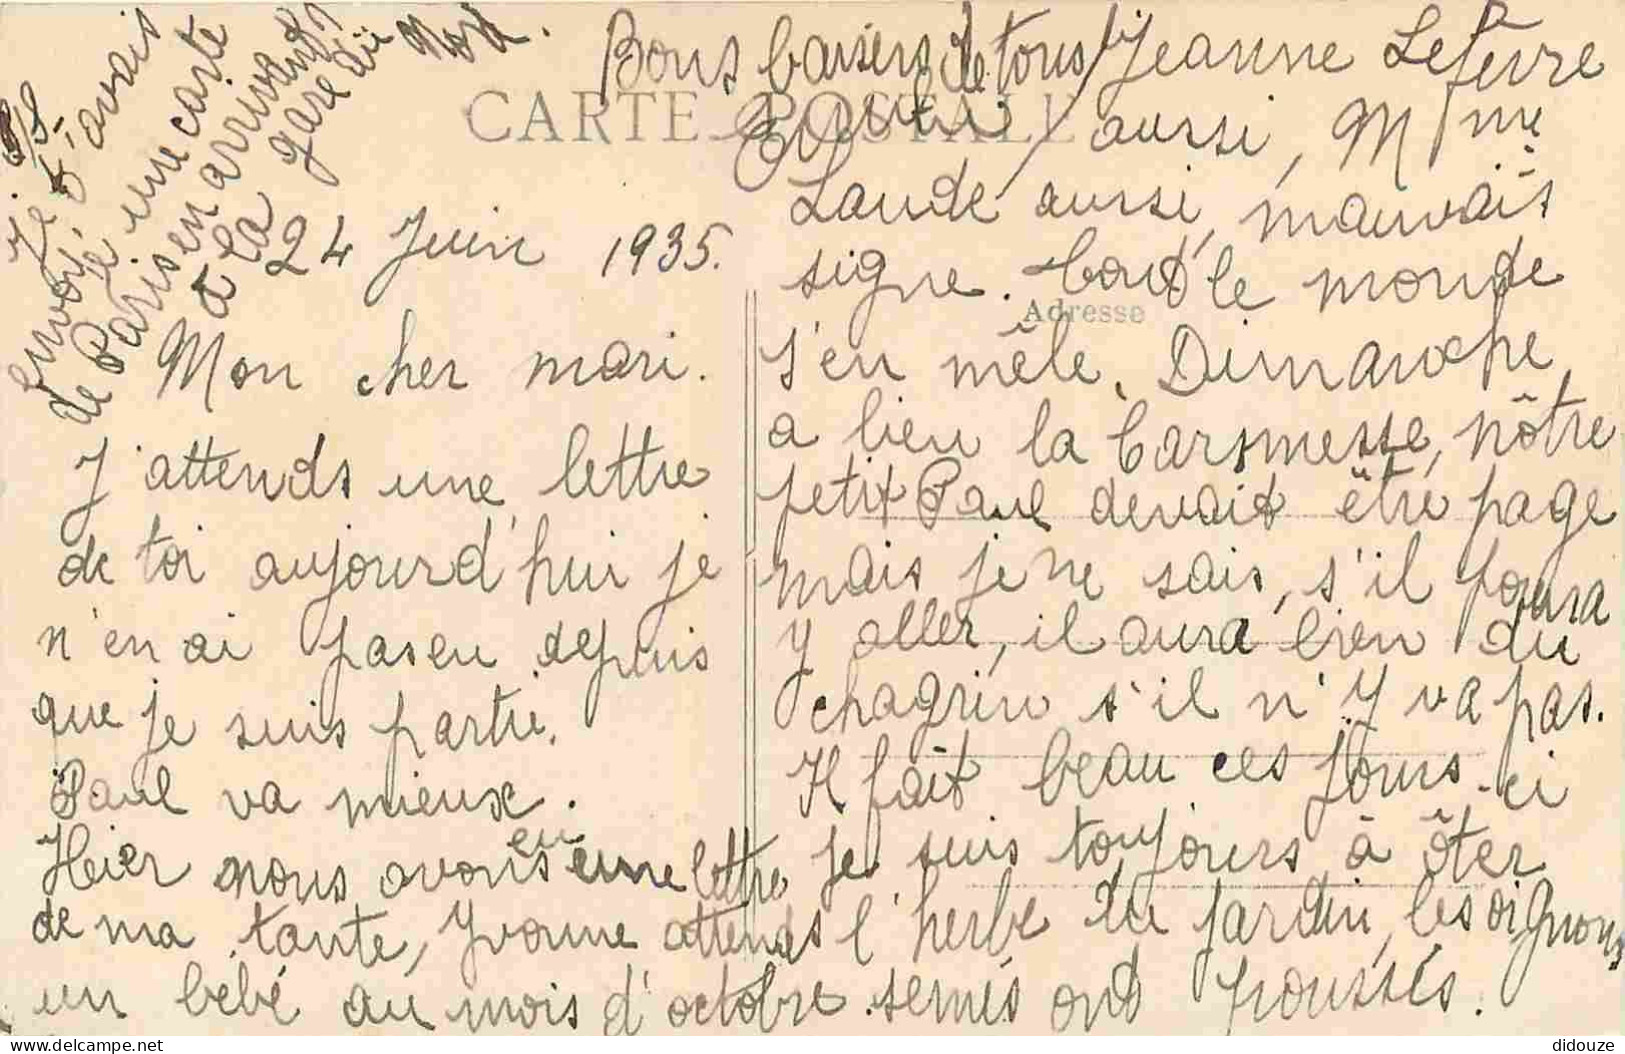 P.S. Je t'avais
envoyé une carte
de Paris en arrivant
à la gare du Nord.
CARTE POSTALE
24 Juin 1935.
Mon cher mari.
J'attends une lettre
de toi aujourd'hui je
n'en ai pas eu depuis
que je suis partie.
Paul va mieux.
Hier nous avons eu une lettre
de ma tante, Yvonne attends
un bébé au mois d'octobre
Bons baisers de tous
Jeanne Lefevre
aussi, Mme
Laude aussi, mauvais
signe. tout le monde
Adresse
s'en mêle. Dimanche
a lieu la Carsmesse, nôtre
petit Paul devait être page
mais je ne sais, s'il poura
y aller, il aura bien du
chagrin s'il n'y va pas.
Il fait beau ces jours-ci
je suis toujours à ôter
l'herbe du jardin, les oignons
semés ont poussés.
didouze
delcampe.net